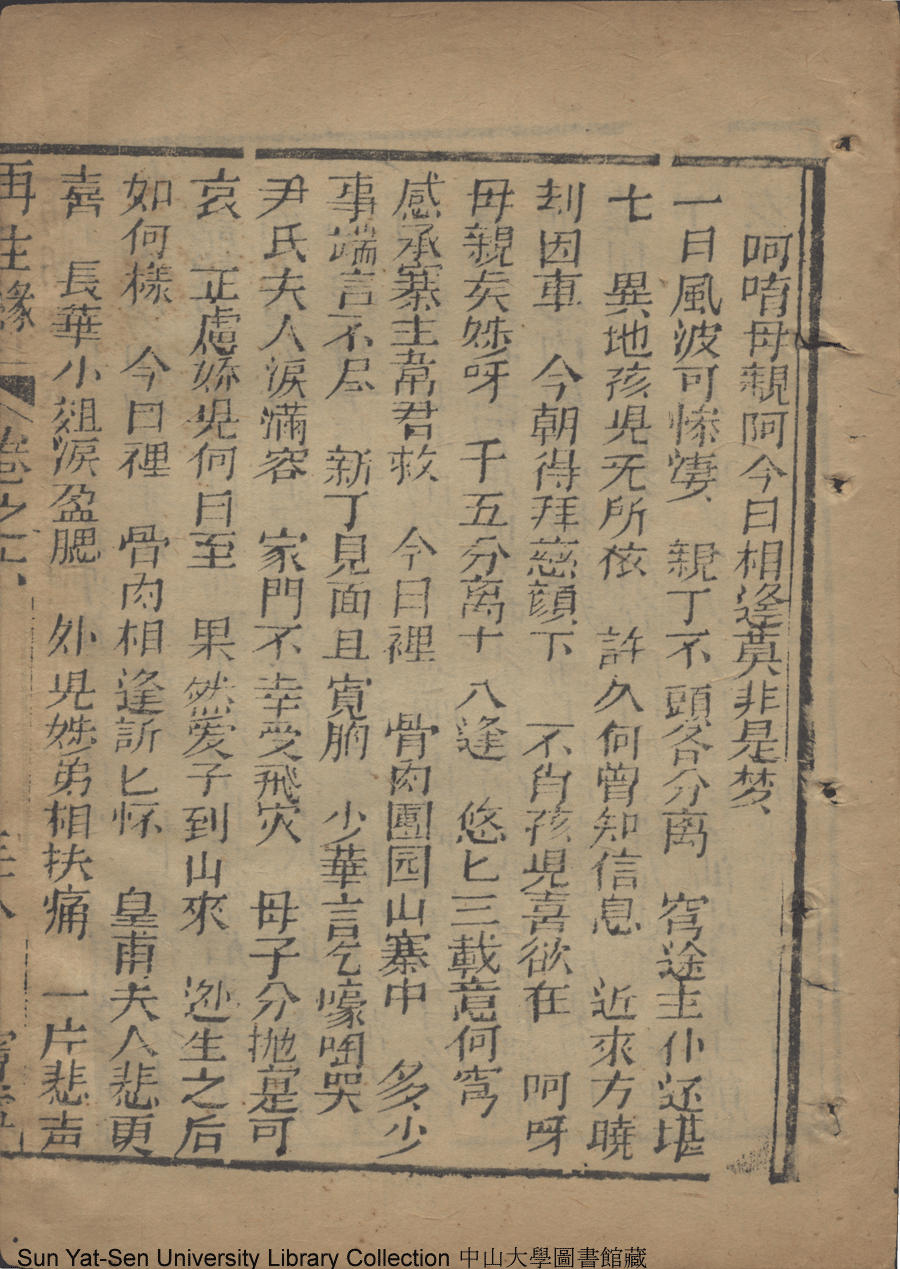 呵唷母親阿今日相逢莫非是梦、
一日風波可慘凄、親丁不頭各分离 窮途主仆还堪
七 異地孩児无所依 許久何曾知信息 近來方曉
刦因車 今朝得拜慈顔下 不肖孩児喜欲在 呵呀
母親矣姊呀 千五分离十八逢 悠匕三載意何窮
感承寨主韋君救 今日裡 骨肉團园山寨中 多少
事端言不尽 新丁見面且寬胸 少華言乞嚎啕哭
尹氏夫人淚滿容 家門不幸受飛灾 母子分抛寔可
哀 正慮娇児何日至 果然爱子到山來 逊生之后
如何樣 今日裡 骨肉相逢訴匕怀 皇甫夫人悲更
喜 長華小姐淚盈腮 外児姊弟相扶痛 一片悲声
再生緣 卷之
Sun Yat-Sen University Library Collection 中山大學圖書館藏